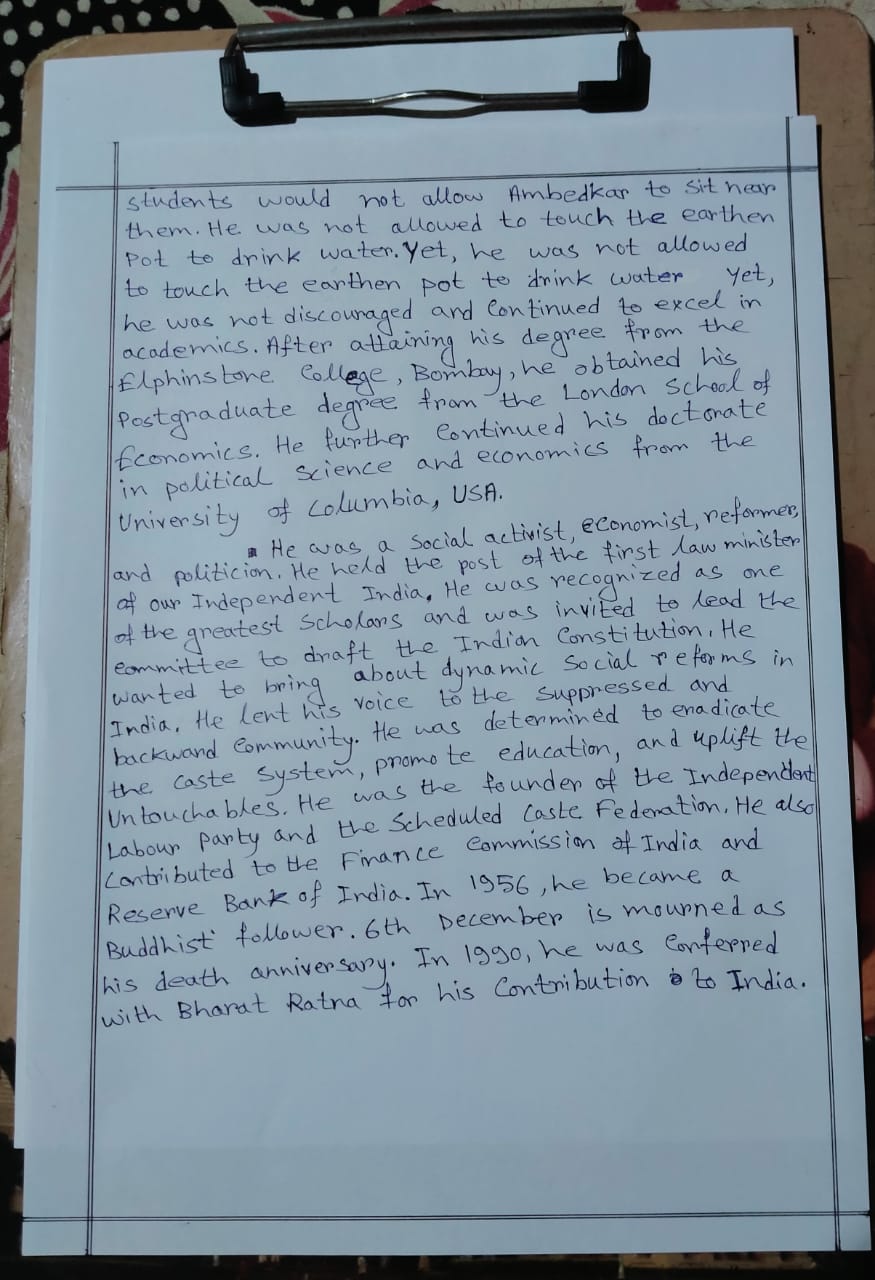 students would not allow Ambedkar to sit near
them. He was not allowed to touch the earthen
Pot to drink water. Yet, he was not allowed
to touch the earthen pot to drink water yet,
he was not discouraged and Continued to excel in
academics. After attaining his degree from the
Elphinstone College, Bombay, he obtained his
Postgraduate degree from the London School of
Economics. He further Continued his doctorate
in political Science and economics from the
University of Columbia, USA.
He was a Social activist, economist, reformer,
and politicion. He held the post of the first law minister
of our Independent India. He was recognized as one
of the greatest Scholars and was invited to lead the
Committee to draft the Indian Constitution. He
wanted to bring about dynamic Social reforms in
India. He lent his voice to the Suppressed and
backward Community. He was determined to eradicate
the Caste System, promote education, and uplift the
Untouchables. He was the founder of the Independent
Labour Party and the Scheduled Caste Federation. He also
Contributed to the Finance Commission of India and
Reserve Bank of India. In 1956, he became a
Buddhist follower. 6th December is mourned as
his death anniversary. In 1990, he was Conferred
with Bharat Ratna for his Contribution to India.